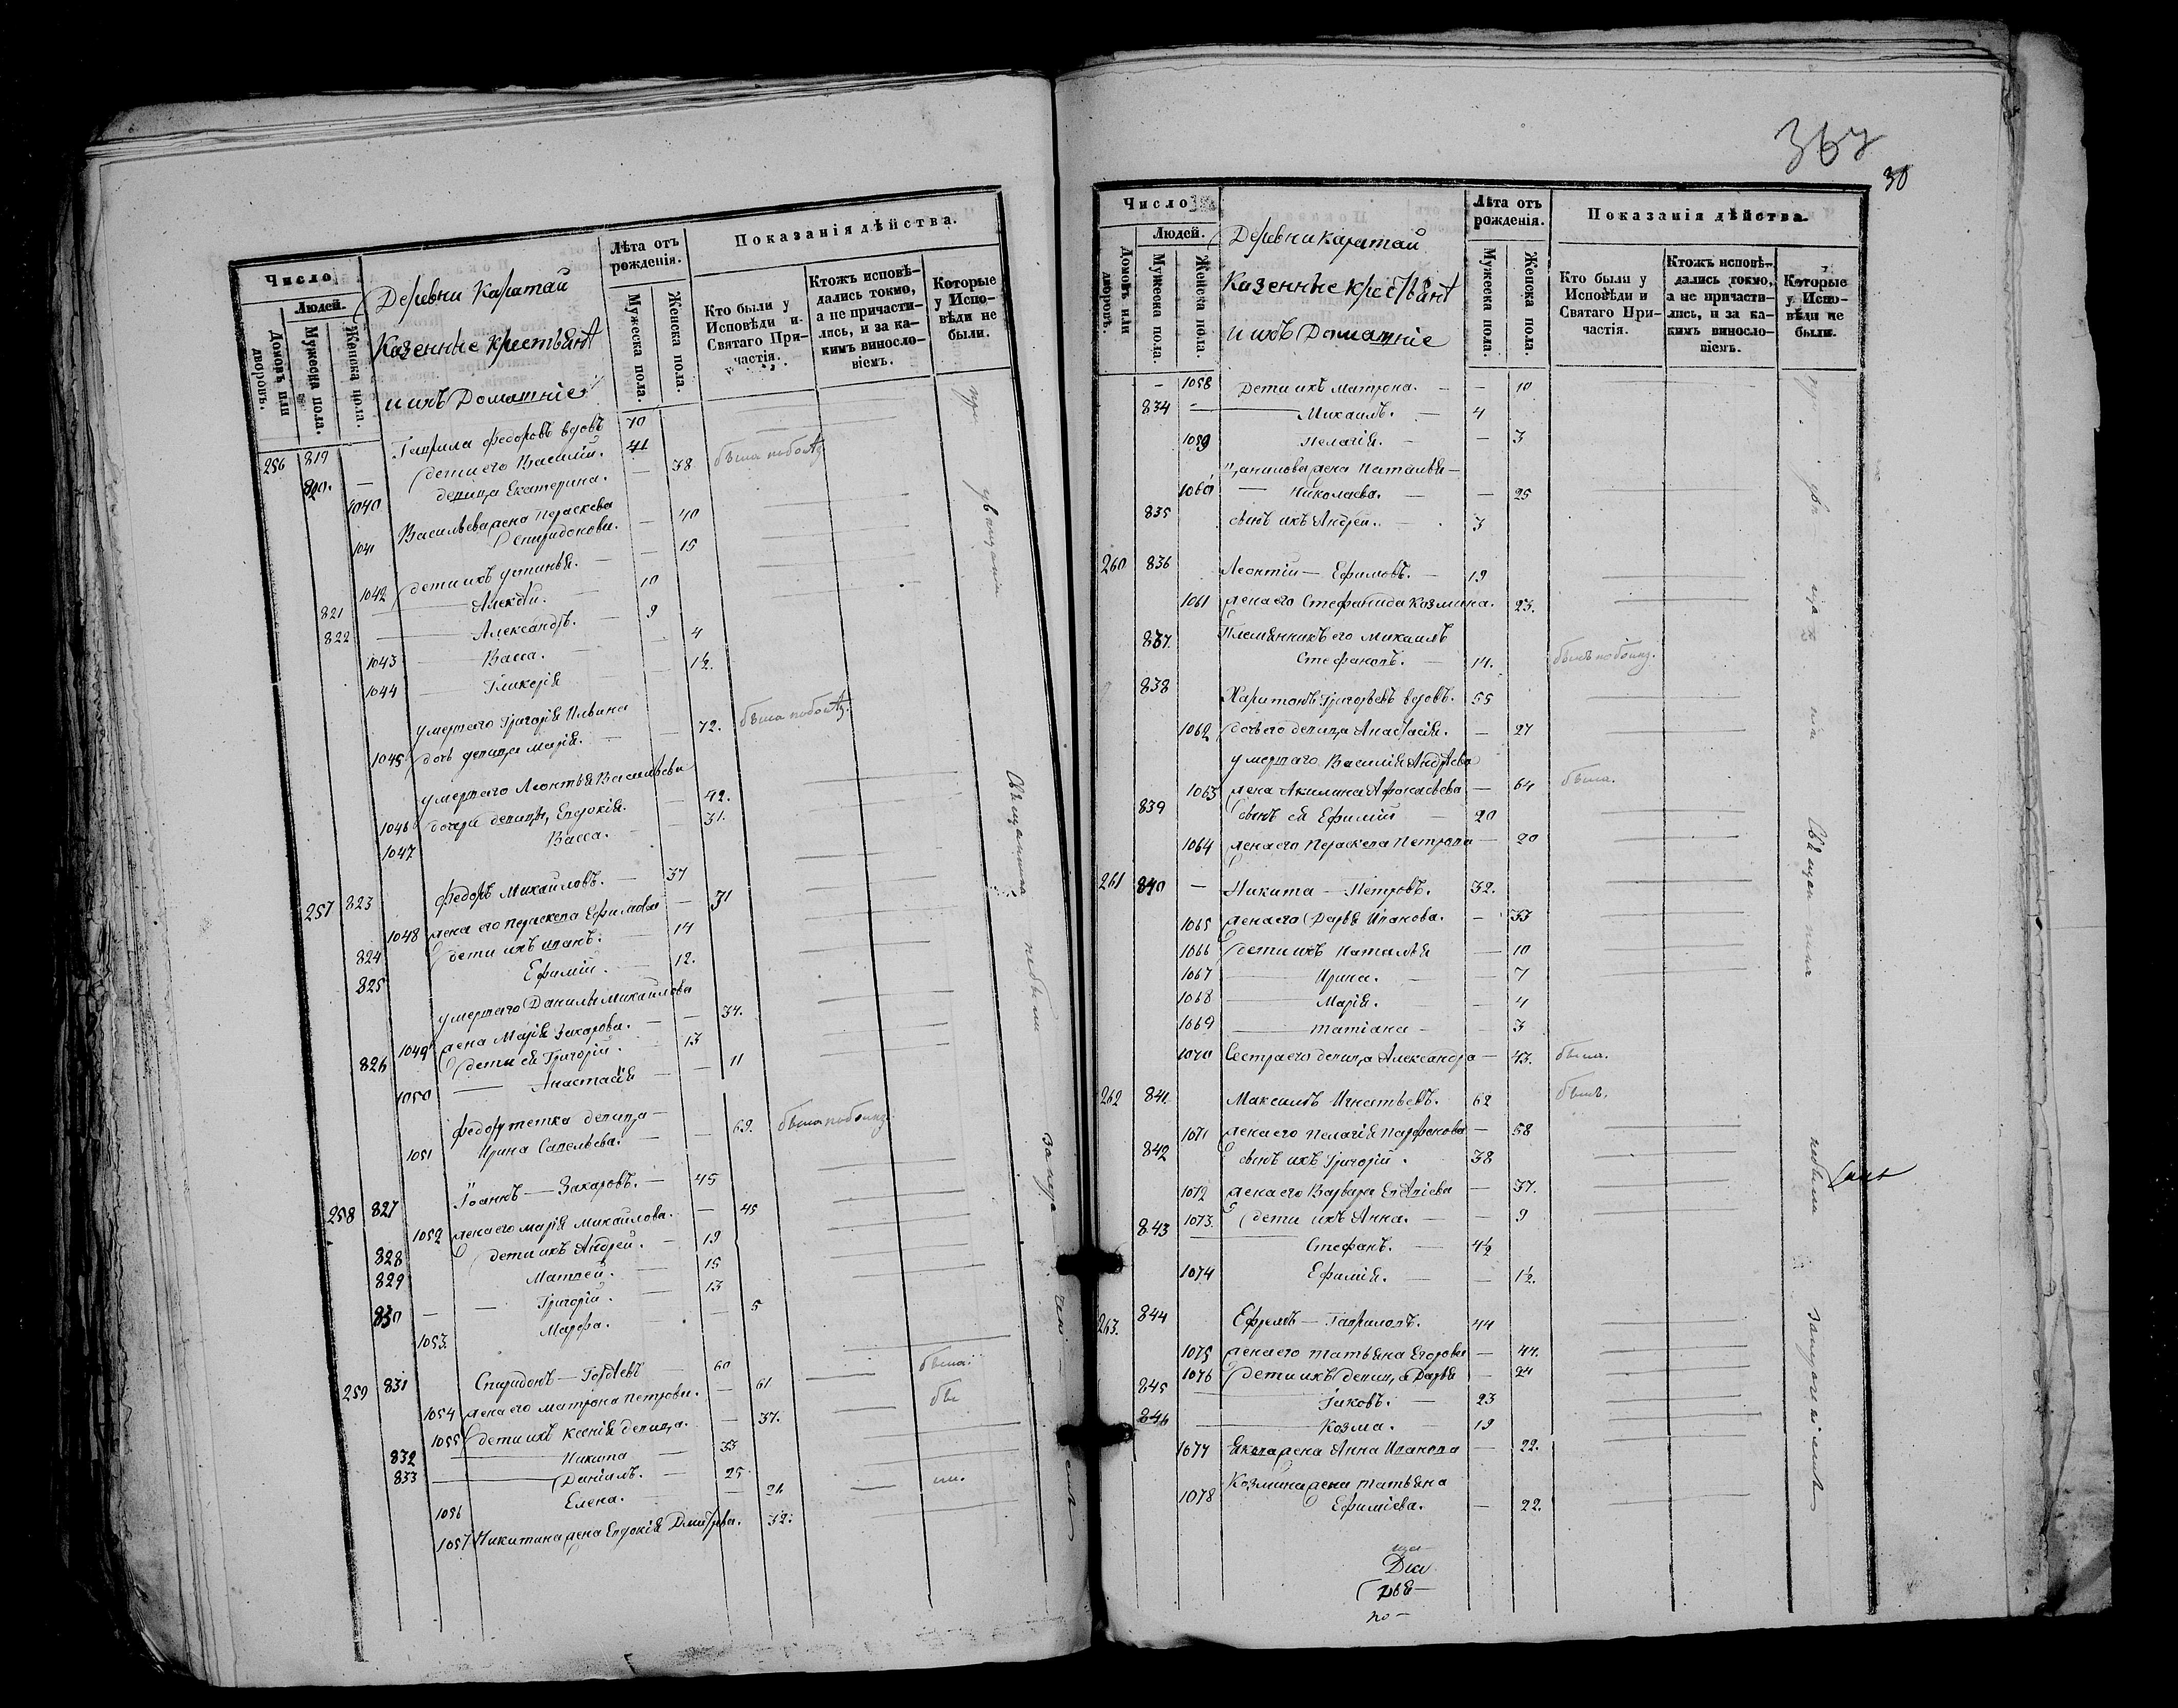 Число
Людей.
Домовъ или дворовъ.
Мужеска пола.
Женска пола.
Деревни Каратаи
Казенные крестьянѣ
и ихъ Домашніе
Лѣта отъ рожденія.
Мужеска пола.
Женска пола.
Показанія дѣйства.
Кто были у Исповѣди и Святаго Причастія.
Ктожъ исповѣдались токмо, а не причастились, и за какимъ винословіемъ.
Которые у Исповѣди не были.
256 819 Гаврила Федоровъ вдовъ 70
820. — дети его Василий. 41
1040 девица Екатерина. — 38
Васильева жена Параскева
1041 Спиридонова. — 40
1042 дети ихъ Устинья. — 15
821 — Алексѣй. 10
822 — Александръ. — 9
1043 — Васса. — 4
1044 — Гликерія — 1½.
умершаго Григорія Ильина
1045 дочь девица Марія. — 72.
умершаго Леонтья Васильева
1046 дочери девицы, Евдокія. — 42.
1047 Васса. — 31.
257 823 Федоръ Михаиловъ. — 37
1048 жена его Параскева Ефимова — 31
824 дети ихъ Иванъ. — 14
825 Ефимій. — 12.
умершаго Данилы Михаилова
1049 жена Марія Захарова. — 34.
826 дети ея Григорій. — 13
1050 — Анастасія — 11
Федор тетка девица —
1051 Ирина Савельева. — 69.
258 827 Іоаннъ — Захаровъ. — 45
1052 жена его Марія Михаилова. — 45
828 дети ихъ Андрей. — 19
829 Матвей. — 15
830 — — Григорій. — 13
1053. Марфа. — 5
259 831 Спиридонъ — Гордѣевъ 60
1054 жена его Матрона Петрова. — 61
1055 дети ихъ Ксенія девица. — 37.
832 — Никита — 33
833 — Даніилъ. — 25
1056 Елена. — 21
1057 Никитина жена Евдокія Дмитрева. 32.
367
30
Число
Людей.
Домовъ или дворовъ.
Мужеска пола.
Женска пола.
Деревни Каратаи
Казенные крестьянѣ
и ихъ Домашніе
Лѣта отъ рожденія.
Мужеска пола.
Женска пола.
Показанія дѣйства.
Кто были у Исповѣди и Святаго Причастія.
Ктожъ исповѣдались токмо, а не причастились, и за какимъ винословіемъ.
Которые у Исповѣди не были.
— 1058 Дети ихъ Матрона. — — 10
834 — Михаилъ. — 4
1059 Пелагія. — — 3
Данилова жена Наталья —
1060 — Николаева. — — 25
835 сынъ ихъ Андрей. — 3
260 836 Леонтій — Ефимовъ. — 19
1061 жена его Стефанида Козмина. 23.
837. Племянникъ его Михаилъ
Стефановъ. — 14.
838 Харитонъ Григорьевъ вдовъ. 55
1062 дочь его девица Анастасія. — 27
умершаго Василія Андрѣева
1063 жена Акилина Афонасьева — 64 была.
839 сынъ ея Ефимій — 20
1064 жена его Параскева Петрова — 20
261 840 — Никита — Петровъ. 32.
1065 жена его Дарья Иванова. — 33
1066 дети ихъ Наталья — 10
1067 Ирина. — — 7
1068 Марія. — 4
1069 — Татіана — — 3
1070 Сестра его девица Александра — 43. была.
262 841. Максимъ Игнатьевъ. 62 былъ.
1071 жена его Пелагія Парфенова — 58
842 сынъ ихъ Григорій. 38
1072 жена его Варвара Евдокіева — 37.
1073. дети ихъ Анна. — — 9
843 — Стефанъ. — 4½
1074 Ефимія. — — 1½.
263. 844 Ефремъ — Гавриловъ. 44
1075 жена его Татьяна Егорова — 44.
1076 дети ихъ девица Дарья — 24
845 — Іаковъ. — 23
846 — Козма. 19
1077 Якова жена Анна Иванова — 22.
Козмина жена Татьяна
1078 Ефимиева. — 22.